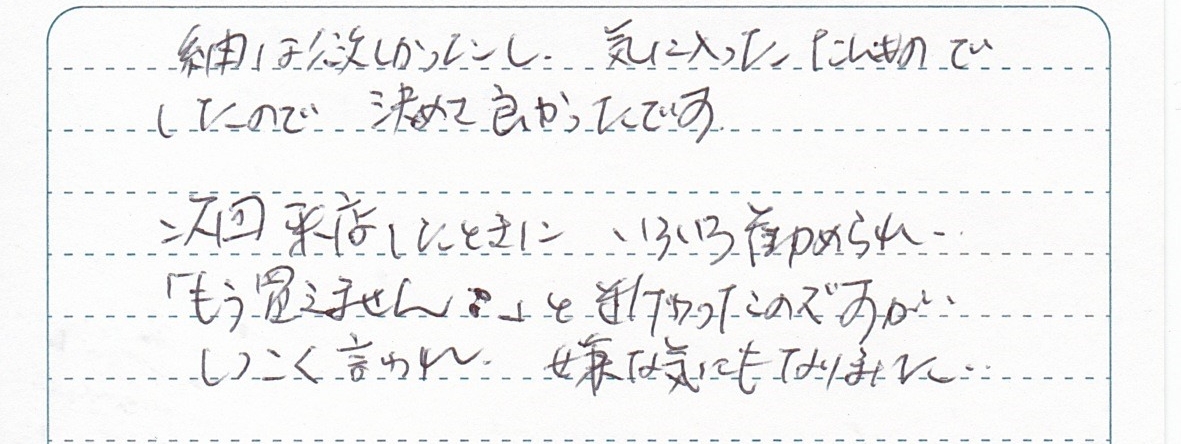 紬は欲しかったし、気に入ったたんもので
したので 決めて良かったです
次回来店したときに いろいろ勧められ…
「もう買えません」と
ですが…
しつこく言われ、嫌な気にもなりました…